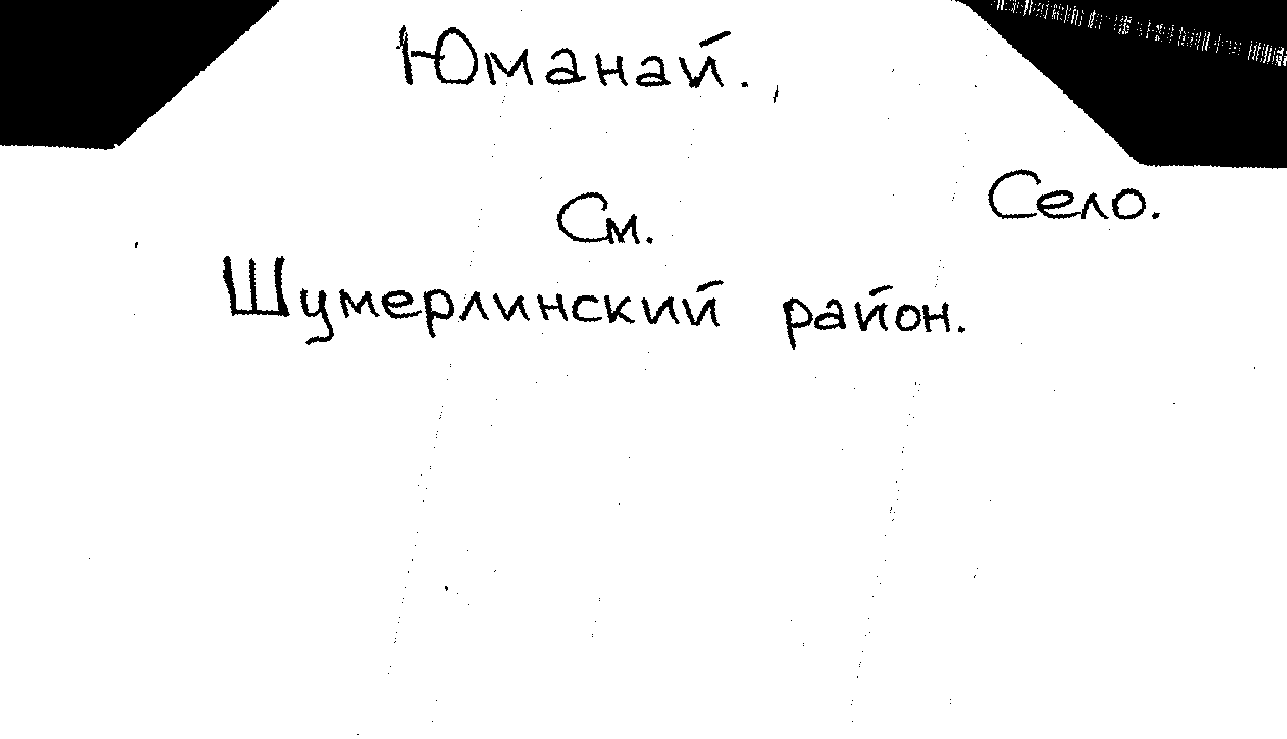 Юманай.,
Село.
См.
Шумерлинский район.